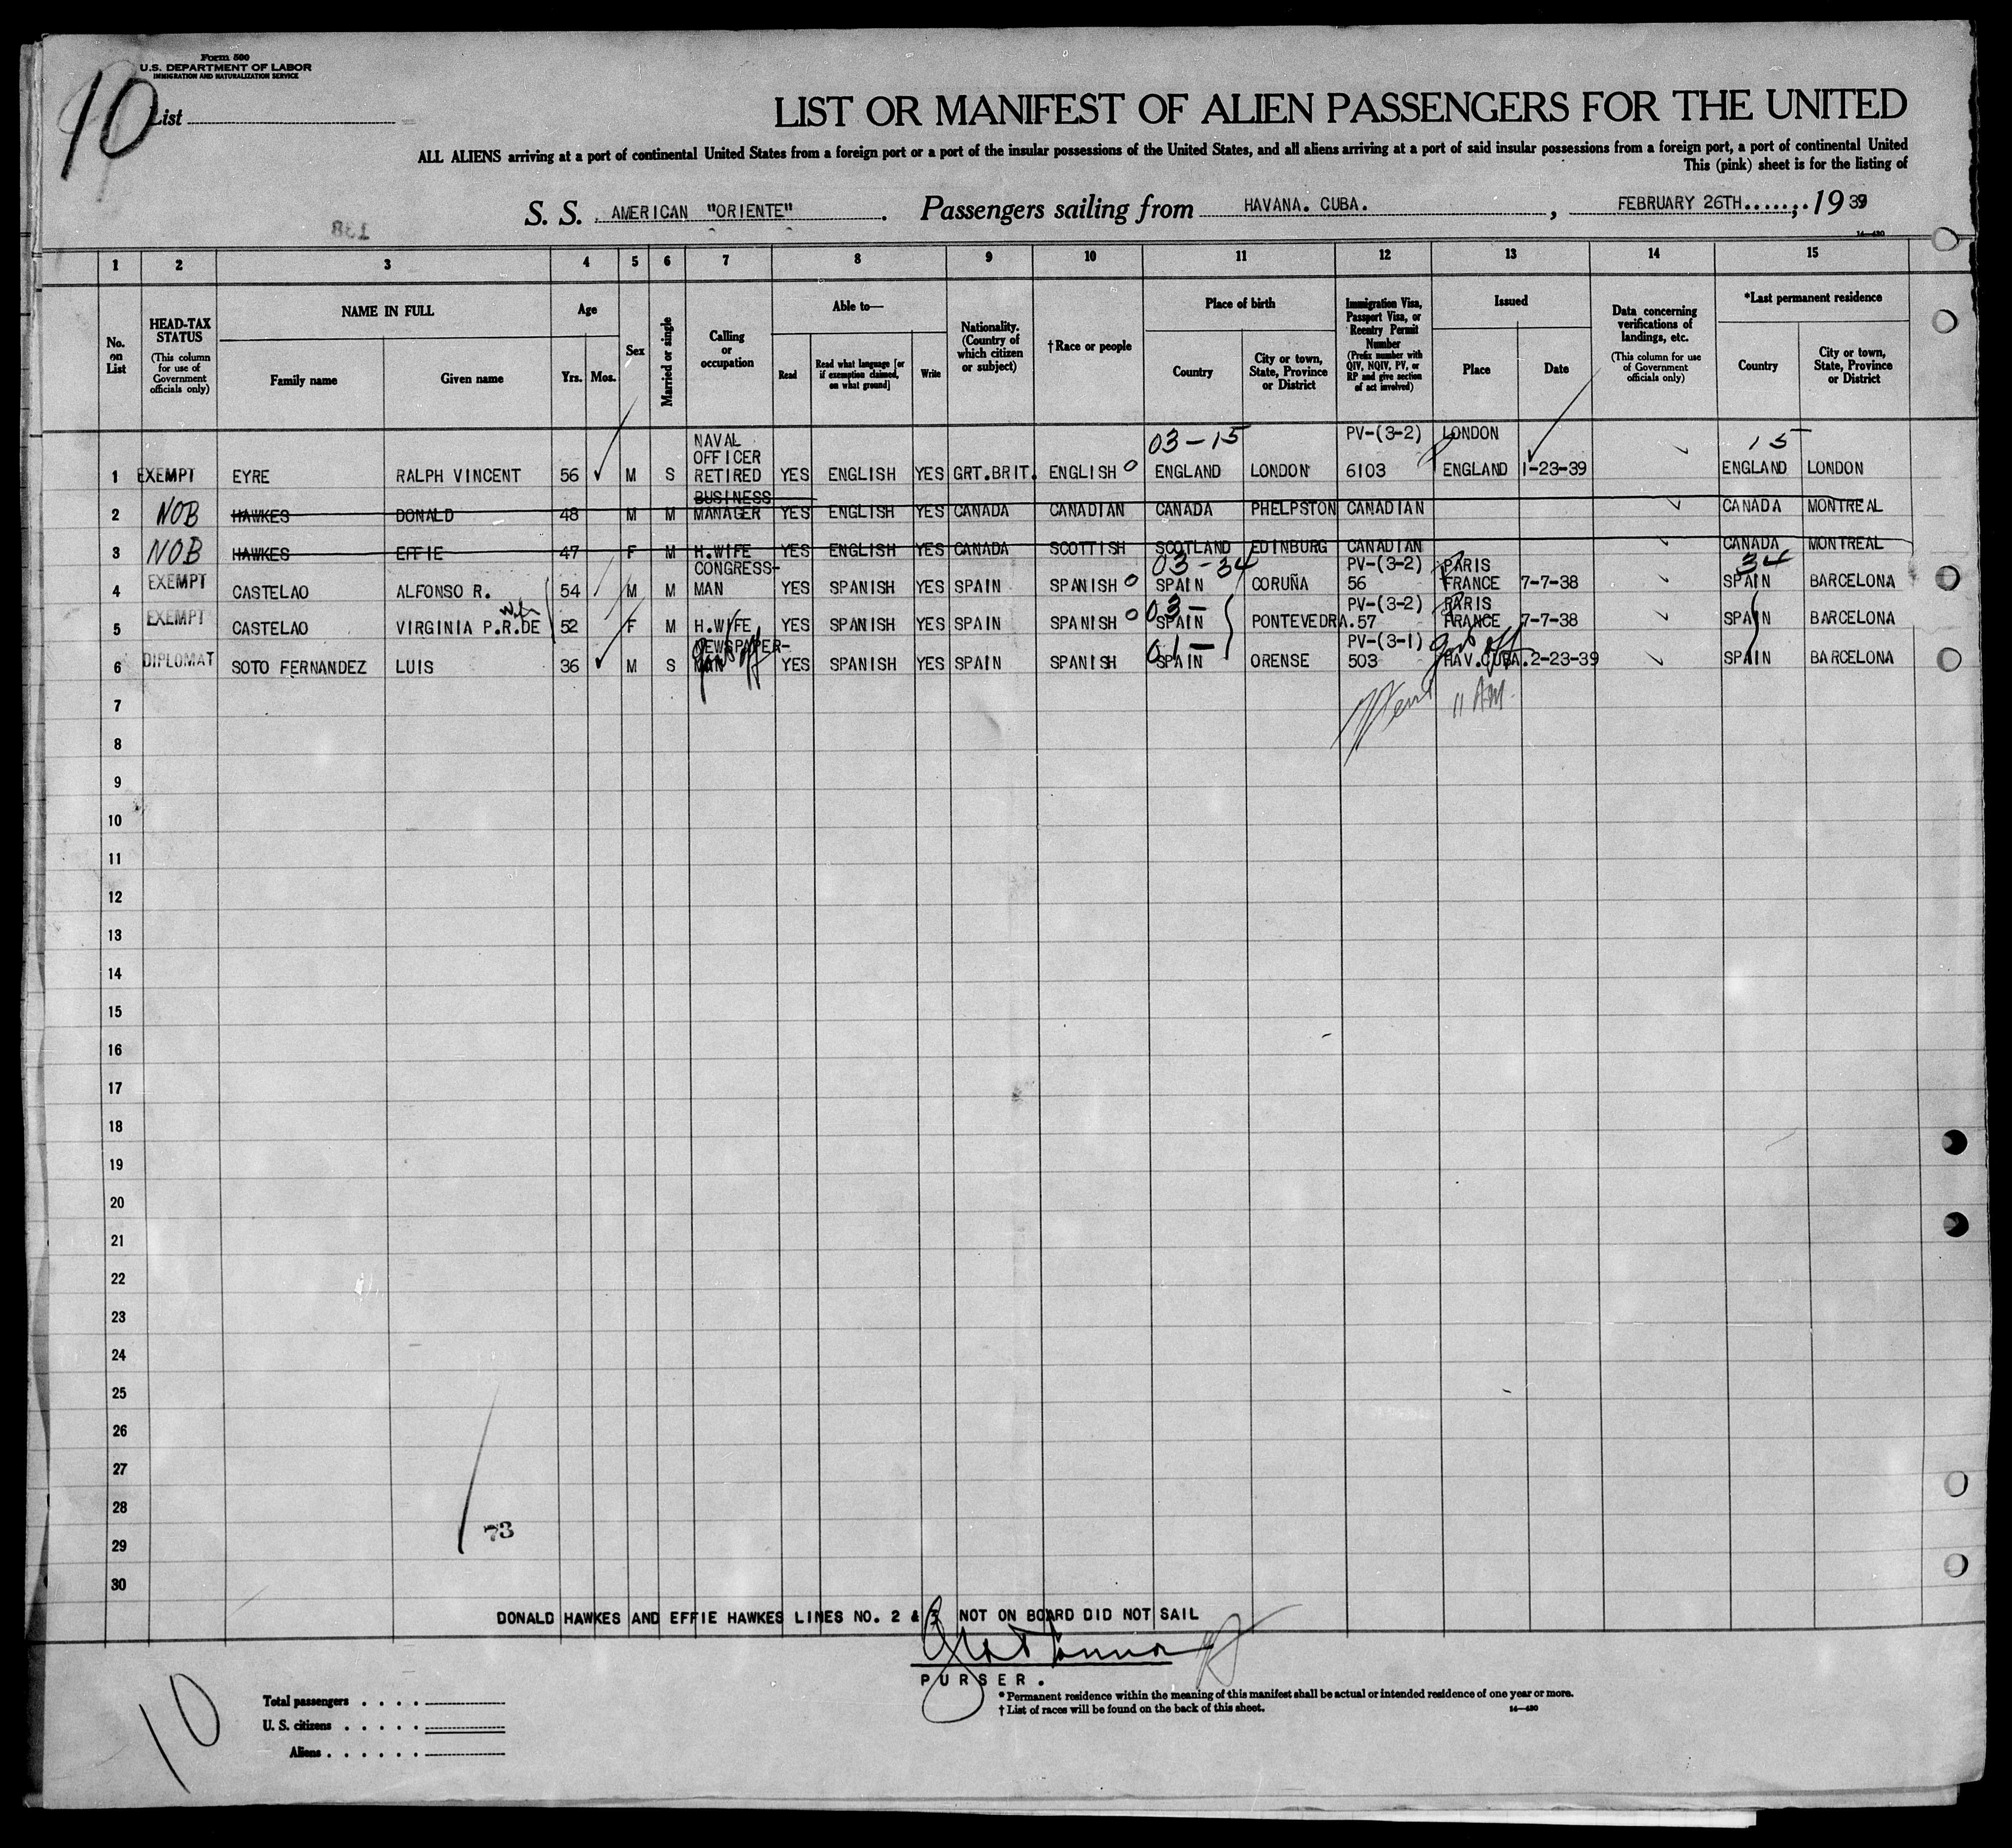 Form 500
U.S. DEPARTMENT OF LABOR
IMMIGRATION AND NATURALIZATION SERVICE
10
List
LIST OR MANIFEST OF ALIEN PASSENGERS FOR THE UNITED
ALL ALIENS arriving at a port of continental United States from a foreign port or a port of the insular possessions of the United States, and all aliens arriving at a port of said insular possessions from a foreign port, a port of continental United
This (pink) sheet is for the listing of
S. S. AMERICAN "ORIENTE" . Passengers sailing from HAVANA. CUBA. , FEBRUARY 26TH.....;. 1939
138
14—430
1 2 3 4 5 6 7 8 9 10 11 12 13 14 15
No. on List
HEAD-TAX STATUS
(This column for use of Government officials only)
NAME IN FULL
Family name
Given name
Age
Yrs. Mos.
Sex
Married or single
Calling or occupation
Able to—
Read
Read what language [or if exemption claimed, on what ground]
Write
Nationality. (Country of which citizen or subject)
†Race or people
Place of birth
Country
City or town, State, Province or District
Immigration Visa, Passport Visa, or Reentry Permit Number
(Prefix number with QIV, NQIV, PV, or RP and give section of act involved)
Issued
Place
Date
Data concerning verifications of landings, etc.
(This column for use of Government officials only)
*Last permanent residence
Country
City or town, State, Province or District
NAVAL 03-15 PV-(3-2) LONDON 15
OFFICER
1 EXEMPT EYRE RALPH VINCENT 56 M S RETIRED YES ENGLISH YES GRT.BRIT. ENGLISH ENGLAND LONDON 6103 ENGLAND 1-23-39 ENGLAND LONDON
BUSINESS
2 NOB HAWKES DONALD 48 M M MANAGER YES ENGLISH YES CANADA CANADIAN CANADA PHELPSTON CANADIAN CANADA MONTREAL
3 NOB HAWKES EFFIE 47 F M H.WIFE YES ENGLISH YES CANADA SCOTTISH SCOTLAND EDINBURG CANADIAN CANADA MONTREAL
CONGRESS- 03-34 PV-(3-2) PARIS 34
4 EXEMPT CASTELAO ALFONSO R. 54 M M MAN YES SPANISH YES SPAIN SPANISH SPAIN CORUÑA 56 FRANCE 7-7-38 SPAIN BARCELONA
wife 03- PV-(3-2) PARIS
5 EXEMPT CASTELAO VIRGINIA P.R.DE 52 F M H.WIFE YES SPANISH YES SPAIN SPANISH SPAIN PONTEVEDRA. 57 FRANCE 7-7-38 SPAIN BARCELONA
NEWSPAPER- 01- PV-(3-1)
6 DIPLOMAT SOTO FERNANDEZ LUIS 36 M S MAN YES SPANISH YES SPAIN SPANISH SPAIN ORENSE 503 HAV.CUBA. 2-23-39 SPAIN BARCELONA
11 AM
7
8
9
10
11
12
13
14
15
16
17
18
19
20
21
22
23
24
25
26
27
28
73
29
30
DONALD HAWKES AND EFFIE HAWKES LINES NO. 2 & 3 NOT ON BOARD DID NOT SAIL
PURSER.
10
Total passengers . . . .
U. S. citizens . . . . .
Aliens . . . . . .
* Permanent residence within the meaning of this manifest shall be actual or intended residence of one year or more.
† List of races will be found on the back of this sheet.
14—430